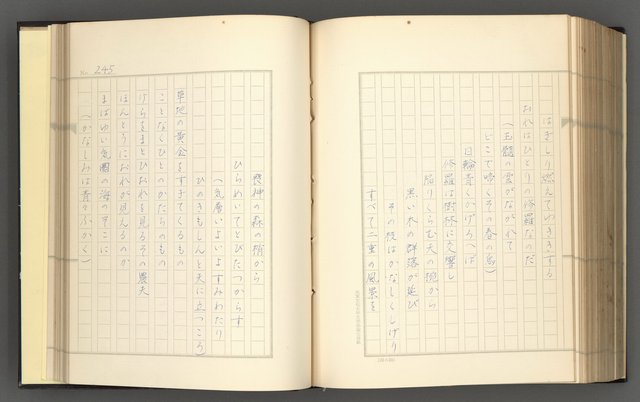 はぎしり燃えてゆききする
おれはひとりの修羅なのだ
(玉髄の雲がながれて
どこで啼くその春の鳥)
日輪青くかげろへば
修羅は樹林に交響し
陥りくらむ天の椀から
黒い木の群落が延び
その枝はかなしくしげり
すべて二重の風景を
No. 245
喪神の森の梢から
ひらめいてとびたつからす
(気層いよいよすみわたり
ひのきもしんと天に立つころ)
草地の黄金をすぎてくるもの
ことなくひとのかたちのもの
けらをまとひおれを見るその農夫
ほんとうにおれが見えるのか
まばゆい気圏の海のそこに
(かなしみは青々ふかく)